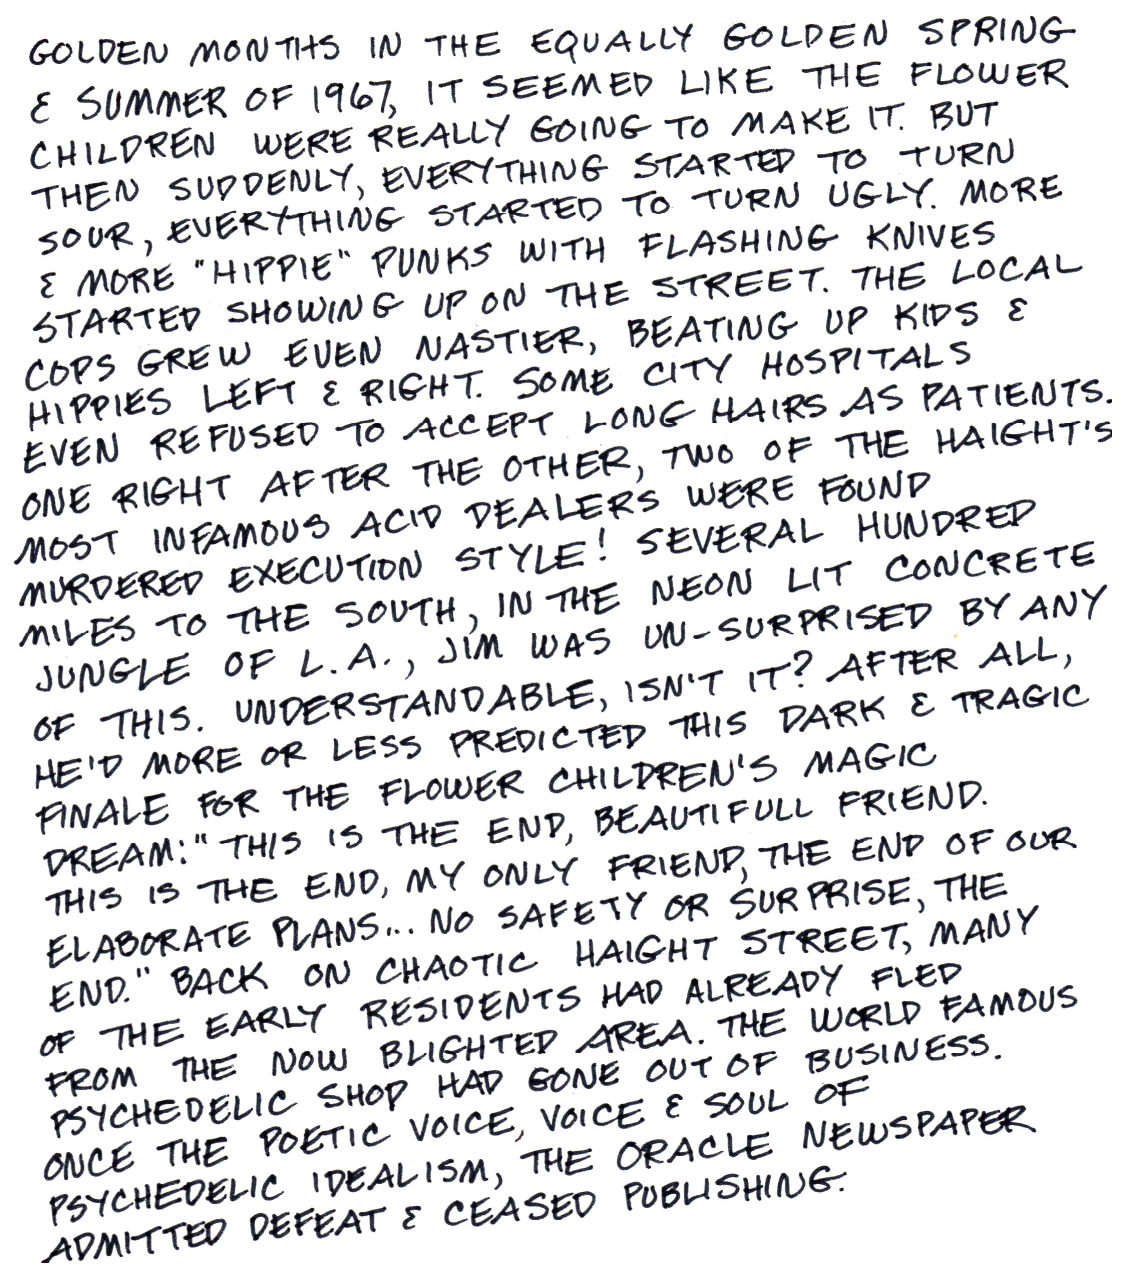 GOLDEN MONTHS IN THE EQUALLY GOLDEN SPRING
& SUMMER OF 1967, IT SEEMED LIKE THE FLOWER
CHILDREN WERE REALLY GOING TO MAKE IT. BUT
THEN SUDDENLY, EVERYTHING STARTED TO TURN
SOUR, EVERYTHING STARTED TO TURN UGLY. MORE
& MORE "HIPPIE" PUNKS WITH FLASHING KNIVES
STARTED SHOWING UP ON THE STREET. THE LOCAL
COPS GREW EVEN NASTIER, BEATING UP KIDS &
HIPPIES LEFT & RIGHT. SOME CITY HOSPITALS
EVEN REFUSED TO ACCEPT LONG HAIRS AS PATIENTS.
ONE RIGHT AFTER THE OTHER, TWO OF THE HAIGHT'S
MOST INFAMOUS ACID DEALERS WERE FOUND
MURDERED EXECUTION STYLE! SEVERAL HUNDRED
MILES TO THE SOUTH, IN THE NEON LIT CONCRETE
JUNGLE OF L.A., JIM WAS UN-SURPRISED BY ANY
OF THIS. UNDERSTANDABLE, ISN'T IT? AFTER ALL,
HE'D MORE OR LESS PREDICTED THIS DARK & TRAGIC
FINALE FOR THE FLOWER CHILDREN'S MAGIC
DREAM: "THIS IS THE END, BEAUTIFULL FRIEND.
THIS IS THE END, MY ONLY FRIEND, THE END OF OUR
ELABORATE PLANS... NO SAFETY OR SURPRISE, THE
END." BACK ON CHAOTIC HAIGHT STREET, MANY
OF THE EARLY RESIDENTS HAD ALREADY FLED
FROM THE NOW BLIGHTED AREA. THE WORLD FAMOUS
PSYCHEDELIC SHOP HAD GONE OUT OF BUSINESS.
ONCE THE POETIC VOICE, VOICE & SOUL OF
PSYCHEDELIC IDEALISM, THE ORACLE NEWSPAPER
ADMITTED DEFEAT & CEASED PUBLISHING.